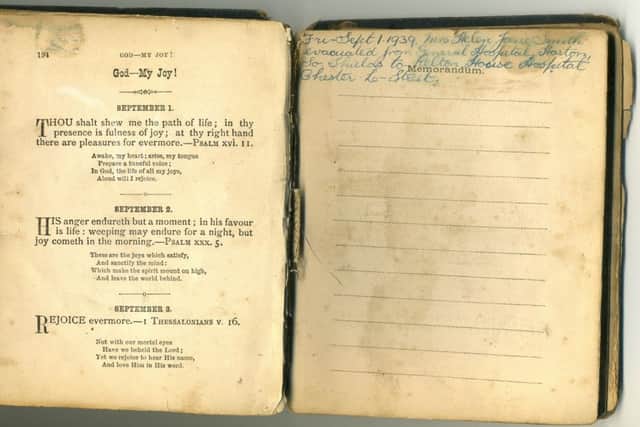 194
GOD—MY JOY!
God—My Joy!
SEPTEMBER 1.
THOU shalt shew me the path of life; in thy
presence is fulness of joy; at thy right hand
there are pleasures for evermore.—PSALM XVI. 11.
Awake, my heart; arise, my tongue
Prepare a tuneful voice;
In God, the life of all my joys,
Aloud will I rejoice.
SEPTEMBER 2.
HIS anger endureth but a moment; in his favour
is life: weeping may endure for a night, but
joy cometh in the morning.—PSALM XXX. 5.
These are the joys which satisfy,
And sanctify the mind:
Which make the spirit mount on high,
And leave the world behind.
SEPTEMBER 3.
REJOICE evermore.—1 THESSALONIANS V. 16.
Not with our mortal eyes
Have we beheld the Lord;
Yet we rejoice to hear His name,
And love Him in His word.
Fri-Sept 1. 1939, Mrs Helen Jane Smith
evacuated from General Hospital, Harton,
So, Shields to House Hospital
Memorandum.
Chester Le-Street,